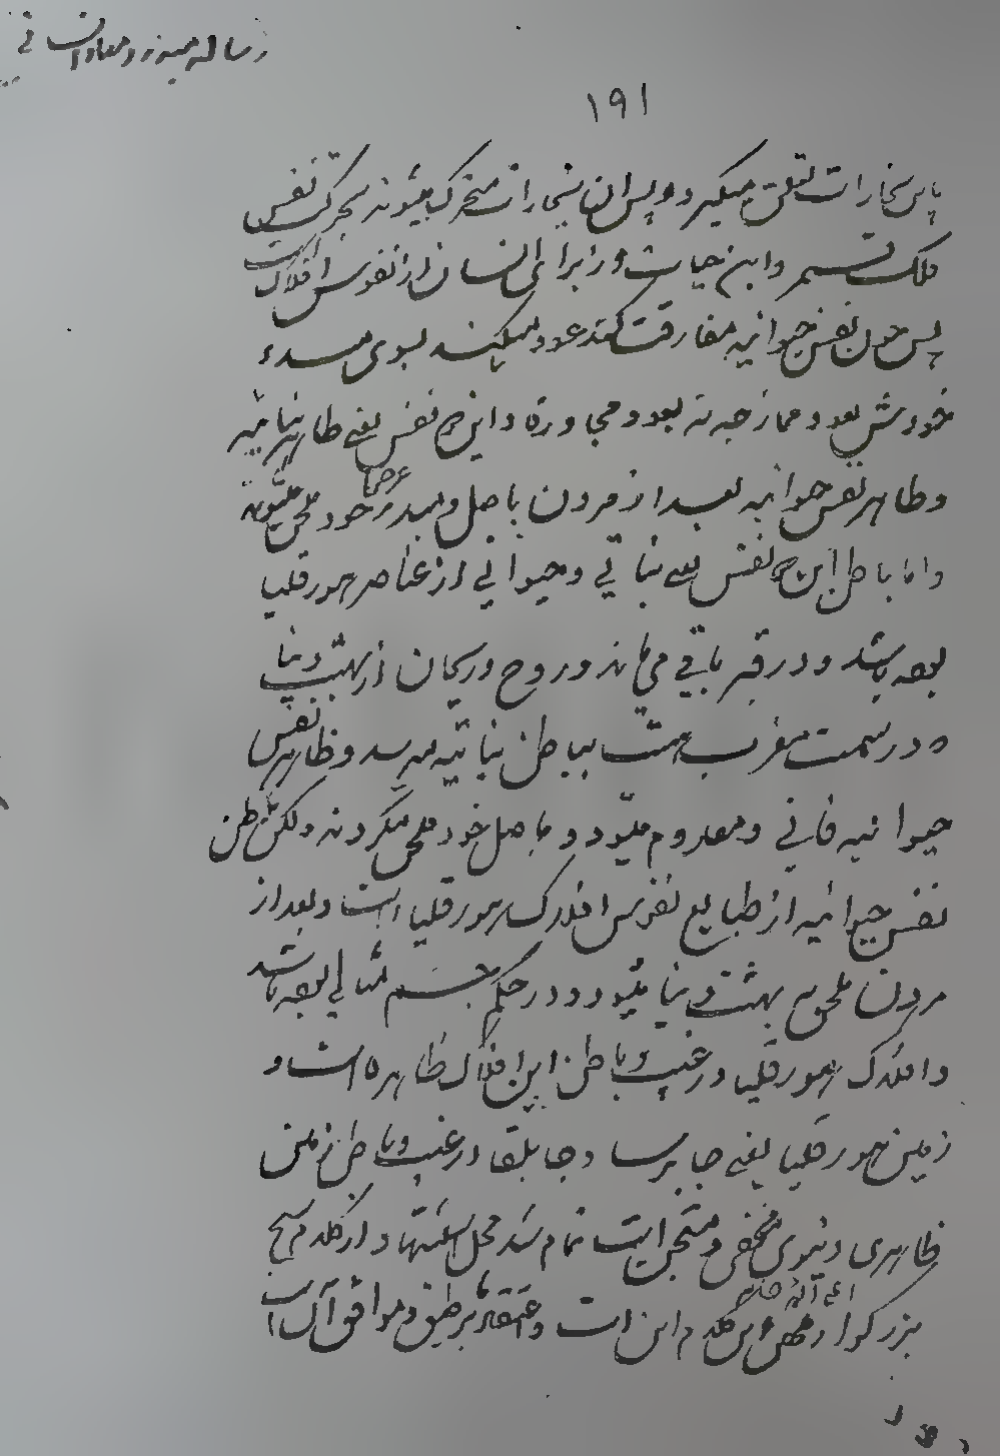 رساله مبدء و معاد
۱۹۱
باین بخارات تعلق میگیرد و پس ان بخارات متحرک میشوند بتحریک نفس
فلک قسم و این حیات در برای انسان از نفوس افلاک است
پس چون نفس حیوانیه مفارقت کند عود میکند بسوی مبدء
خودش عود ممازجه نه عود مجاوره و این نفس یعنی ظاهر نباتیه
و ظاهر نفس حیوانیه بعد از مردن باصل و مبدء خود ملحق میشوند
و اما باطن این نفس یعنی نباتی و حیوانی از عناصر هورقلیا
بوده باشد و در قبر باقی می ماند و روح و ریحان از بهشت دنیا
که در سمت مغرب است بباطن نباتیه میرسد و ظاهر نفس
حیوانیه فانی و معدوم میشود و باصل خود ملحق میگردند ولکن باطن
نفس حیوانیه از طبایع نفوس افلاک هورقلیا است و بعد از
مردن ملحق به بهشت دنیا میشود و در حکم جسم مثالی بوده باشد
و افلاک هورقلیا در غیب و باطن این افلاک ظاهره است و
زمین هورقلیا یعنی جابرسا و جابلقا در غیب و باطن زمین
ظاهری دنیوی مخفی و تمام شد محل استشهاد از کلام شیخ
بزرگوار اعلی الله مقامه کلام این است و بر طبق و موافق آن است